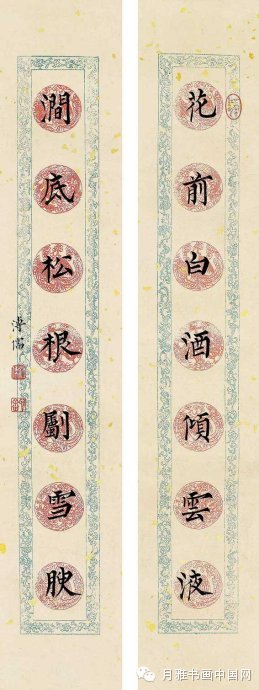 花前白酒傾雲液
澗底松根劚雪腴
溥儒
月雅书画中国网